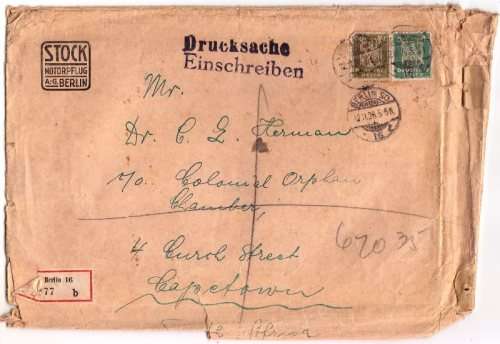 STOCK
MOTORPFLUG
A.G. BERLIN
Drucksache
Einschreiben
Mr.
Dr. C. L. Herman
c/o Colonial Orphan
Chamber,
4 Church Street
Capetown
Africa
BERLIN SO
62035
Berlin 16
77 b